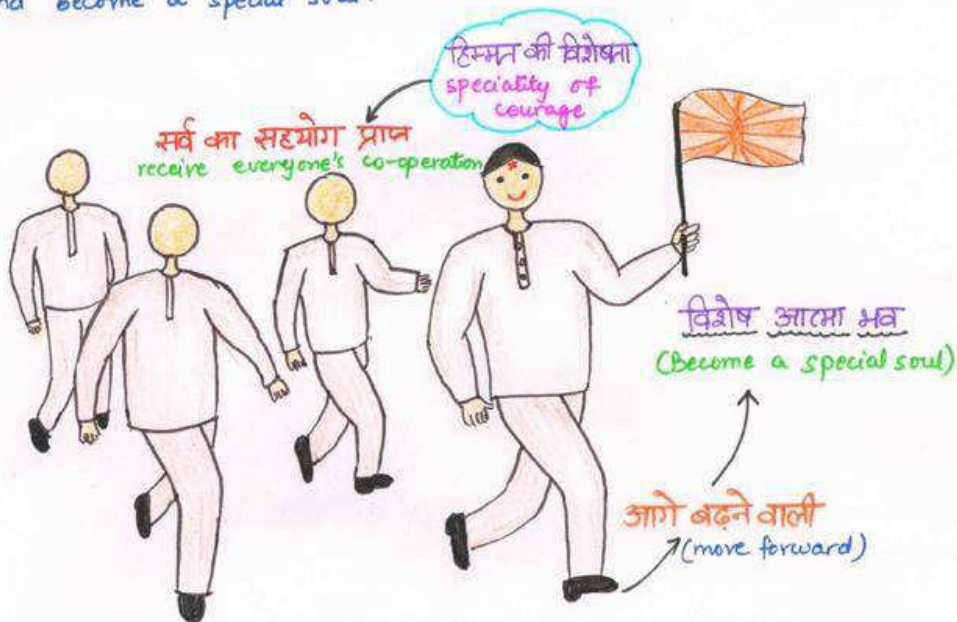 and become a special soul.
हिम्मत की विशेषता
speciality of
courage
सर्व का सहयोग प्राप्त
receive everyone's co-operation
विशेष आत्मा भव
(Become a special soul)
आगे बढ़ने वाली
(move forward)